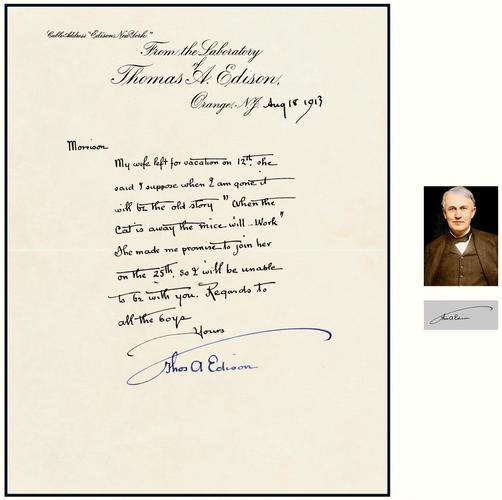 Cable Address "Edison, New York"
From the Laboratory
of
Thomas A. Edison,
Orange, N.J. Aug 18 1913
Morrison
My wife left for vacation on 12th, she
said I suppose when I am gone it
will be the old story "When the
Cat is away the mice will - Work"
She made me promise to join her
on the 25th, so I will be unable
to be with you. Regards to
all the boys
Yours
Thos A Edison
Thos A Edison